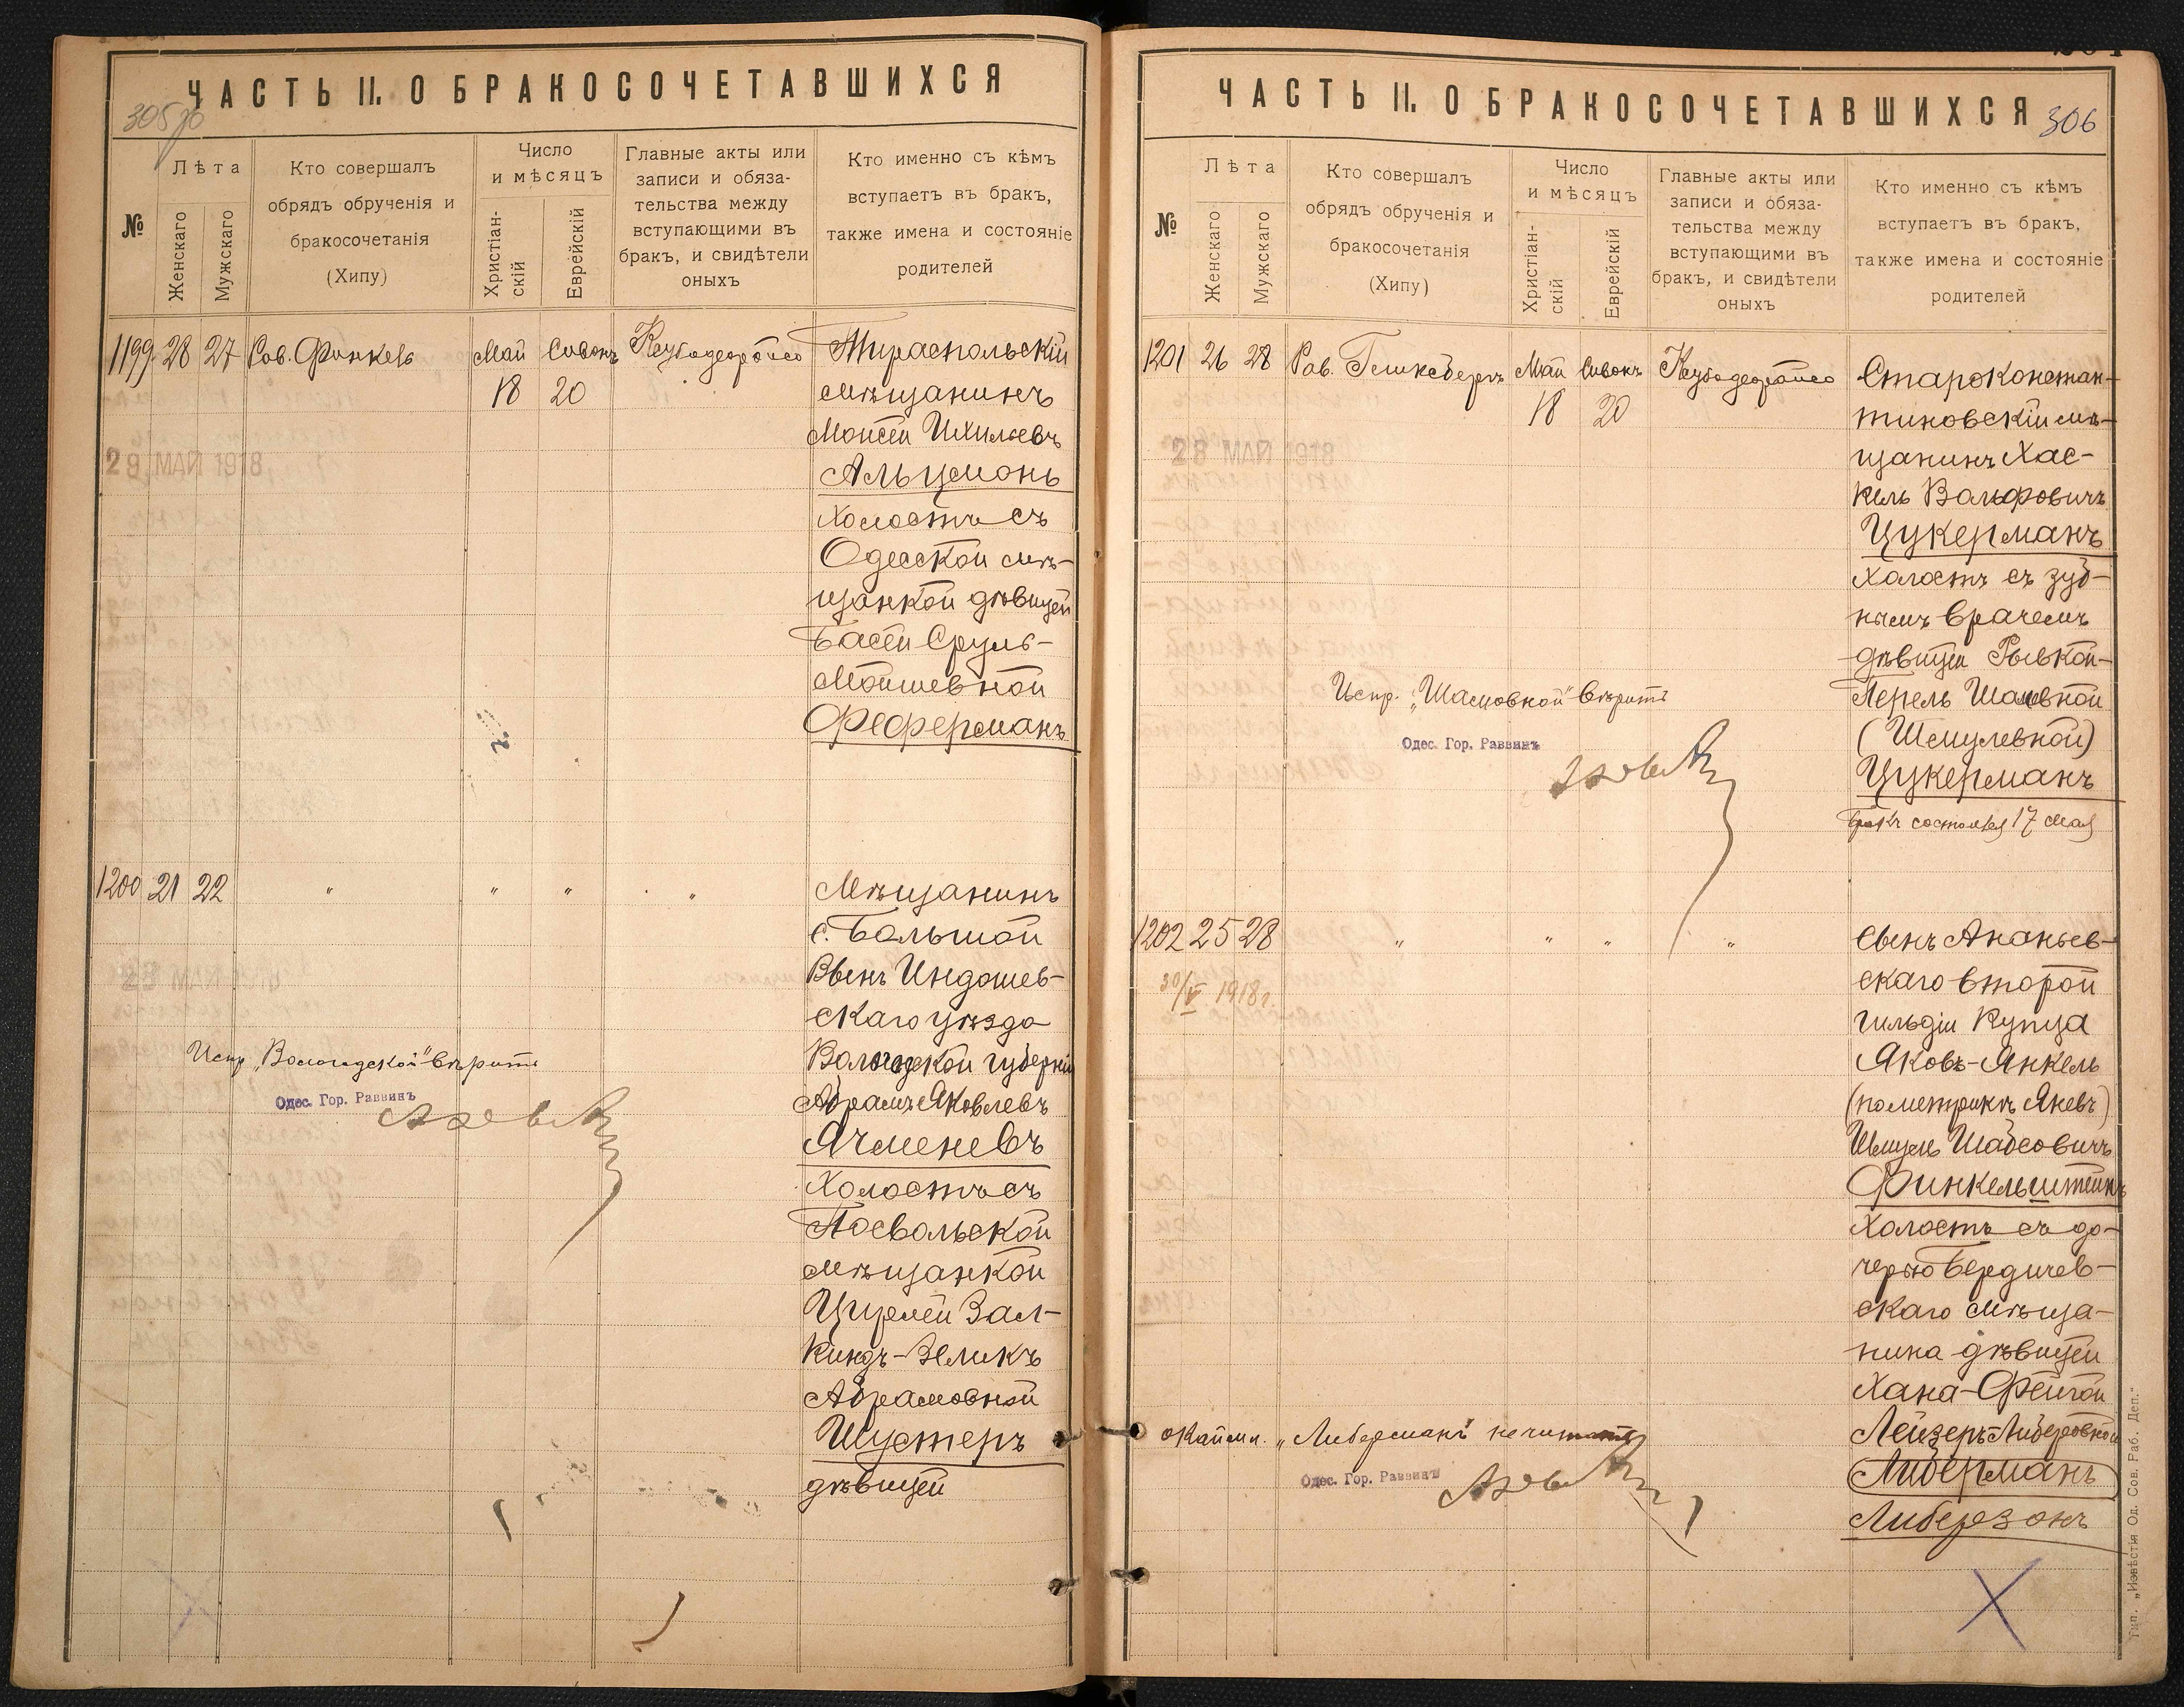 ЧАСТЬ II. О БРАКОСОЧЕТАВШИХСЯ
305 об
№
Лѣта
Женскаго
Мужскаго
Кто совершалъ
обрядъ обрученія и
бракосочетанія
(Хипу)
Число
и мѣсяцъ
Христіан-
скій
Еврейскій
Главные акты или
записи и обяза-
тельства между
вступающими въ
бракъ, и свидѣтели
оныхъ
Кто именно съ кѣмъ
вступаетъ въ бракъ,
также имена и состояніе
родителей
1199 28 27 Рав. Финкель Май Сивонъ
18 20
29 МАЙ 1918
Тираспольскій
мѣщанинъ
Мойсей Ихильевъ
Альцмонъ
холостъ съ
Одесской мѣ-
щанкой дѣвицей
Басей Сруль-
Мойшевной
Феферманъ
1200 21 22 " " " "
Мѣщанинъ
с. Большой
Вьенъ Индошев-
скаго уѣзда
Вологодской губерніи
Абрамъ Яковлевъ
Ячменевъ
холостъ съ
Посвольской
мѣщанкой
Цирелей Зал-
киндъ-Зеликъ
Абрамовной
Шустеръ
дѣвицей
Испр. „Вологодской" вѣрить
Одес. Гор. Раввинъ
ЧАСТЬ II. О БРАКОСОЧЕТАВШИХСЯ
306
№
Лѣта
Женскаго
Мужскаго
Кто совершалъ
обрядъ обрученія и
бракосочетанія
(Хипу)
Число
и мѣсяцъ
Христіан-
скій
Еврейскій
Главные акты или
записи и обяза-
тельства между
вступающими въ
бракъ, и свидѣтели
оныхъ
Кто именно съ кѣмъ
вступаетъ въ бракъ,
также имена и состояніе
родителей
1201 26 28 Рав. Гликсбергъ Май Сивонъ
18 20
28 МАЙ 1918
Староконстан-
тиновскій мѣ-
щанинъ Хас-
кель Вольфовичъ
Цукерманъ
холостъ съ зуб-
нымъ врачемъ
дѣвицей Рывкой-
Перель
(Шмулевной)
Цукерманъ
Бракъ состоялся 17 мая
Испр. вѣрить
Одес. Гор. Раввинъ
1202 25 28 " " " "
30/V 1918 г.
Сынъ Ананьев-
скаго второй
гильдіи купца
Яковъ-Янкель
(по метрикѣ Якевъ)
Шмуль Шабсовичъ
Финкельштейнъ
холостъ съ до-
черью Бердичев-
скаго мѣща-
нина дѣвицей
Хана-Фейгой
Лейзеръ-Либеровной
Либерманъ
Либерзонъ
окаймл. „Либерманъ" не читать
Одес. Гор. Раввинъ
Тип. „Извѣстія Од. Сов. Раб. Деп."